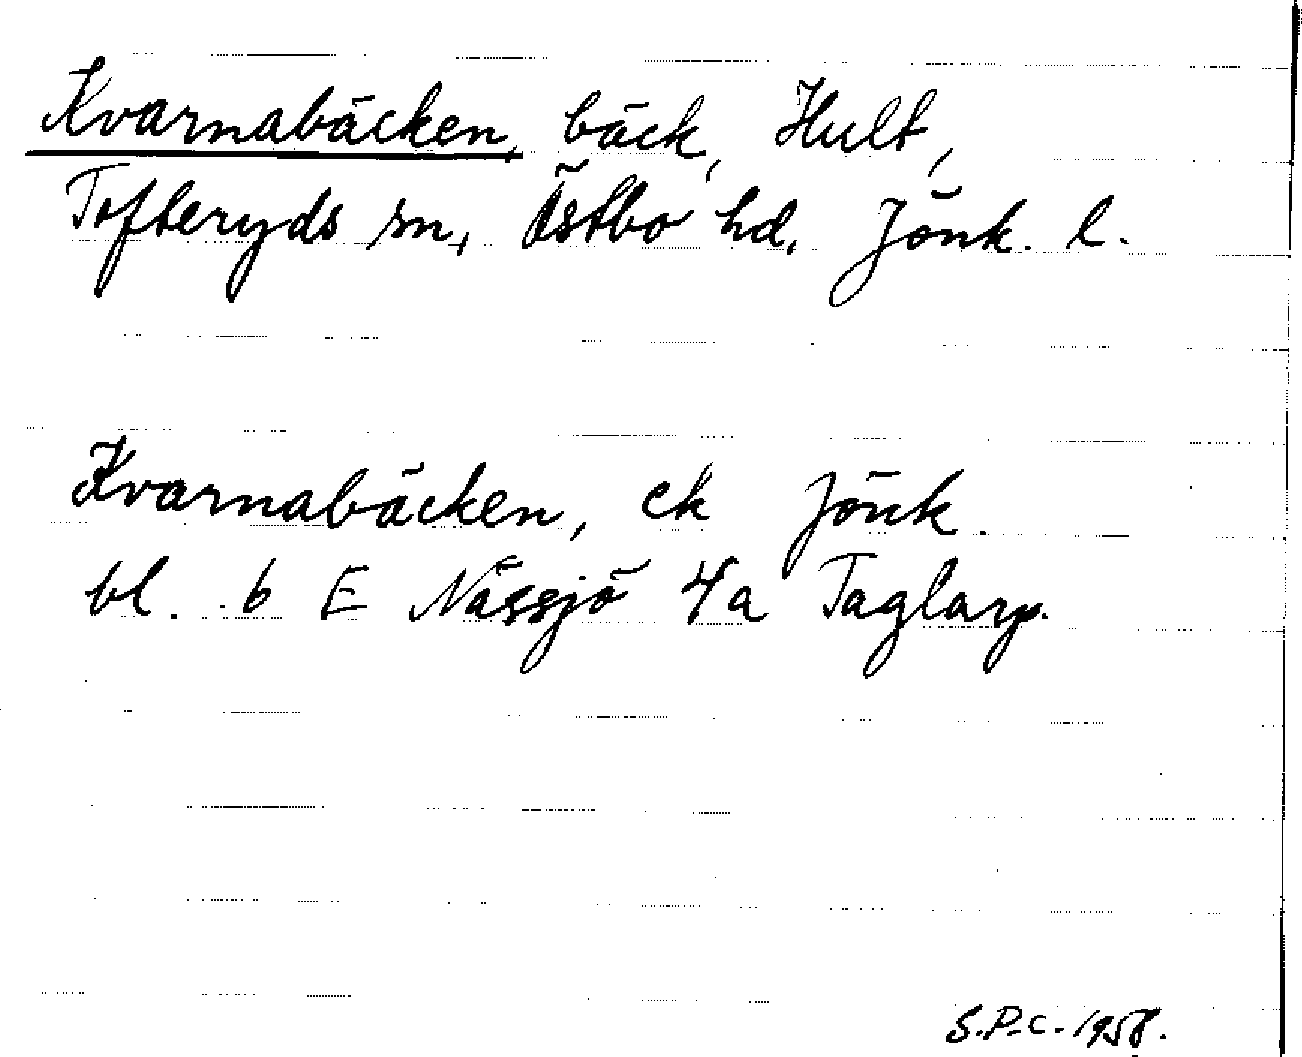 Kvarnabäcken, bäck, Hult,
Tofteryds sn, Östbo hd, Jönk. l.
Kvarnabäcken, ek Jönk.
bl. 6 E Nässjö 4a Taglarp.
S.P.C. 1958.